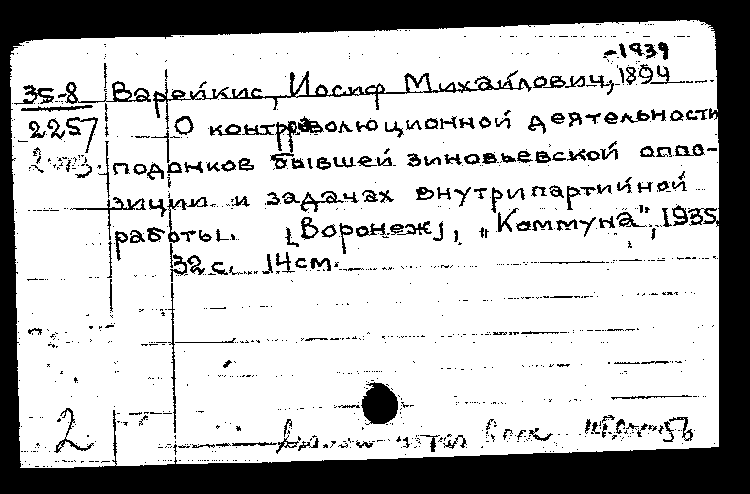 -1939
35-8 Варейкис, Иосиф Михайлович, 1894
2257 О контрреволюционной деятельности
2 экз. подонков бывшей зиновьевской оппо-
зиции и задачах внутрипартийной
работы. [Воронеж], „Коммуна", 1935.
32 с. 14 см.
2